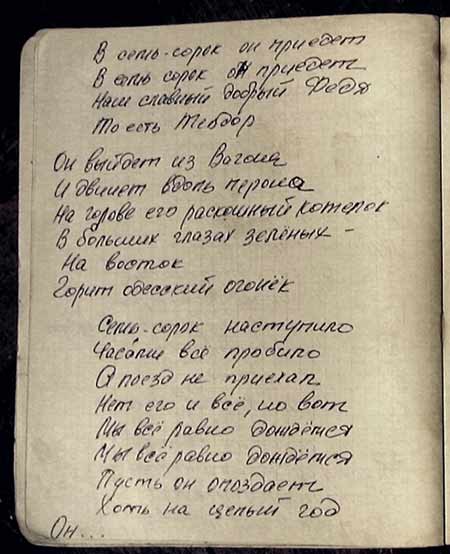 В семь-сорок он приедет
В семь сорок он приедет
Наш славный добрый Федя
То есть Теодор
Он выйдет из Вагона
И двинет вдоль перона
На голове его раскошный котелок
В больших глазах зелёных -
На восток
Горит одесский огонёк
Семь-сорок наступило
Часами всё пробило
А поезд не приехал
Нет его и всё, но вот
Мы всё равно дождёмся
Мы всё равно дождёмся
Пусть он опоздает
Хоть на целый год
Он...